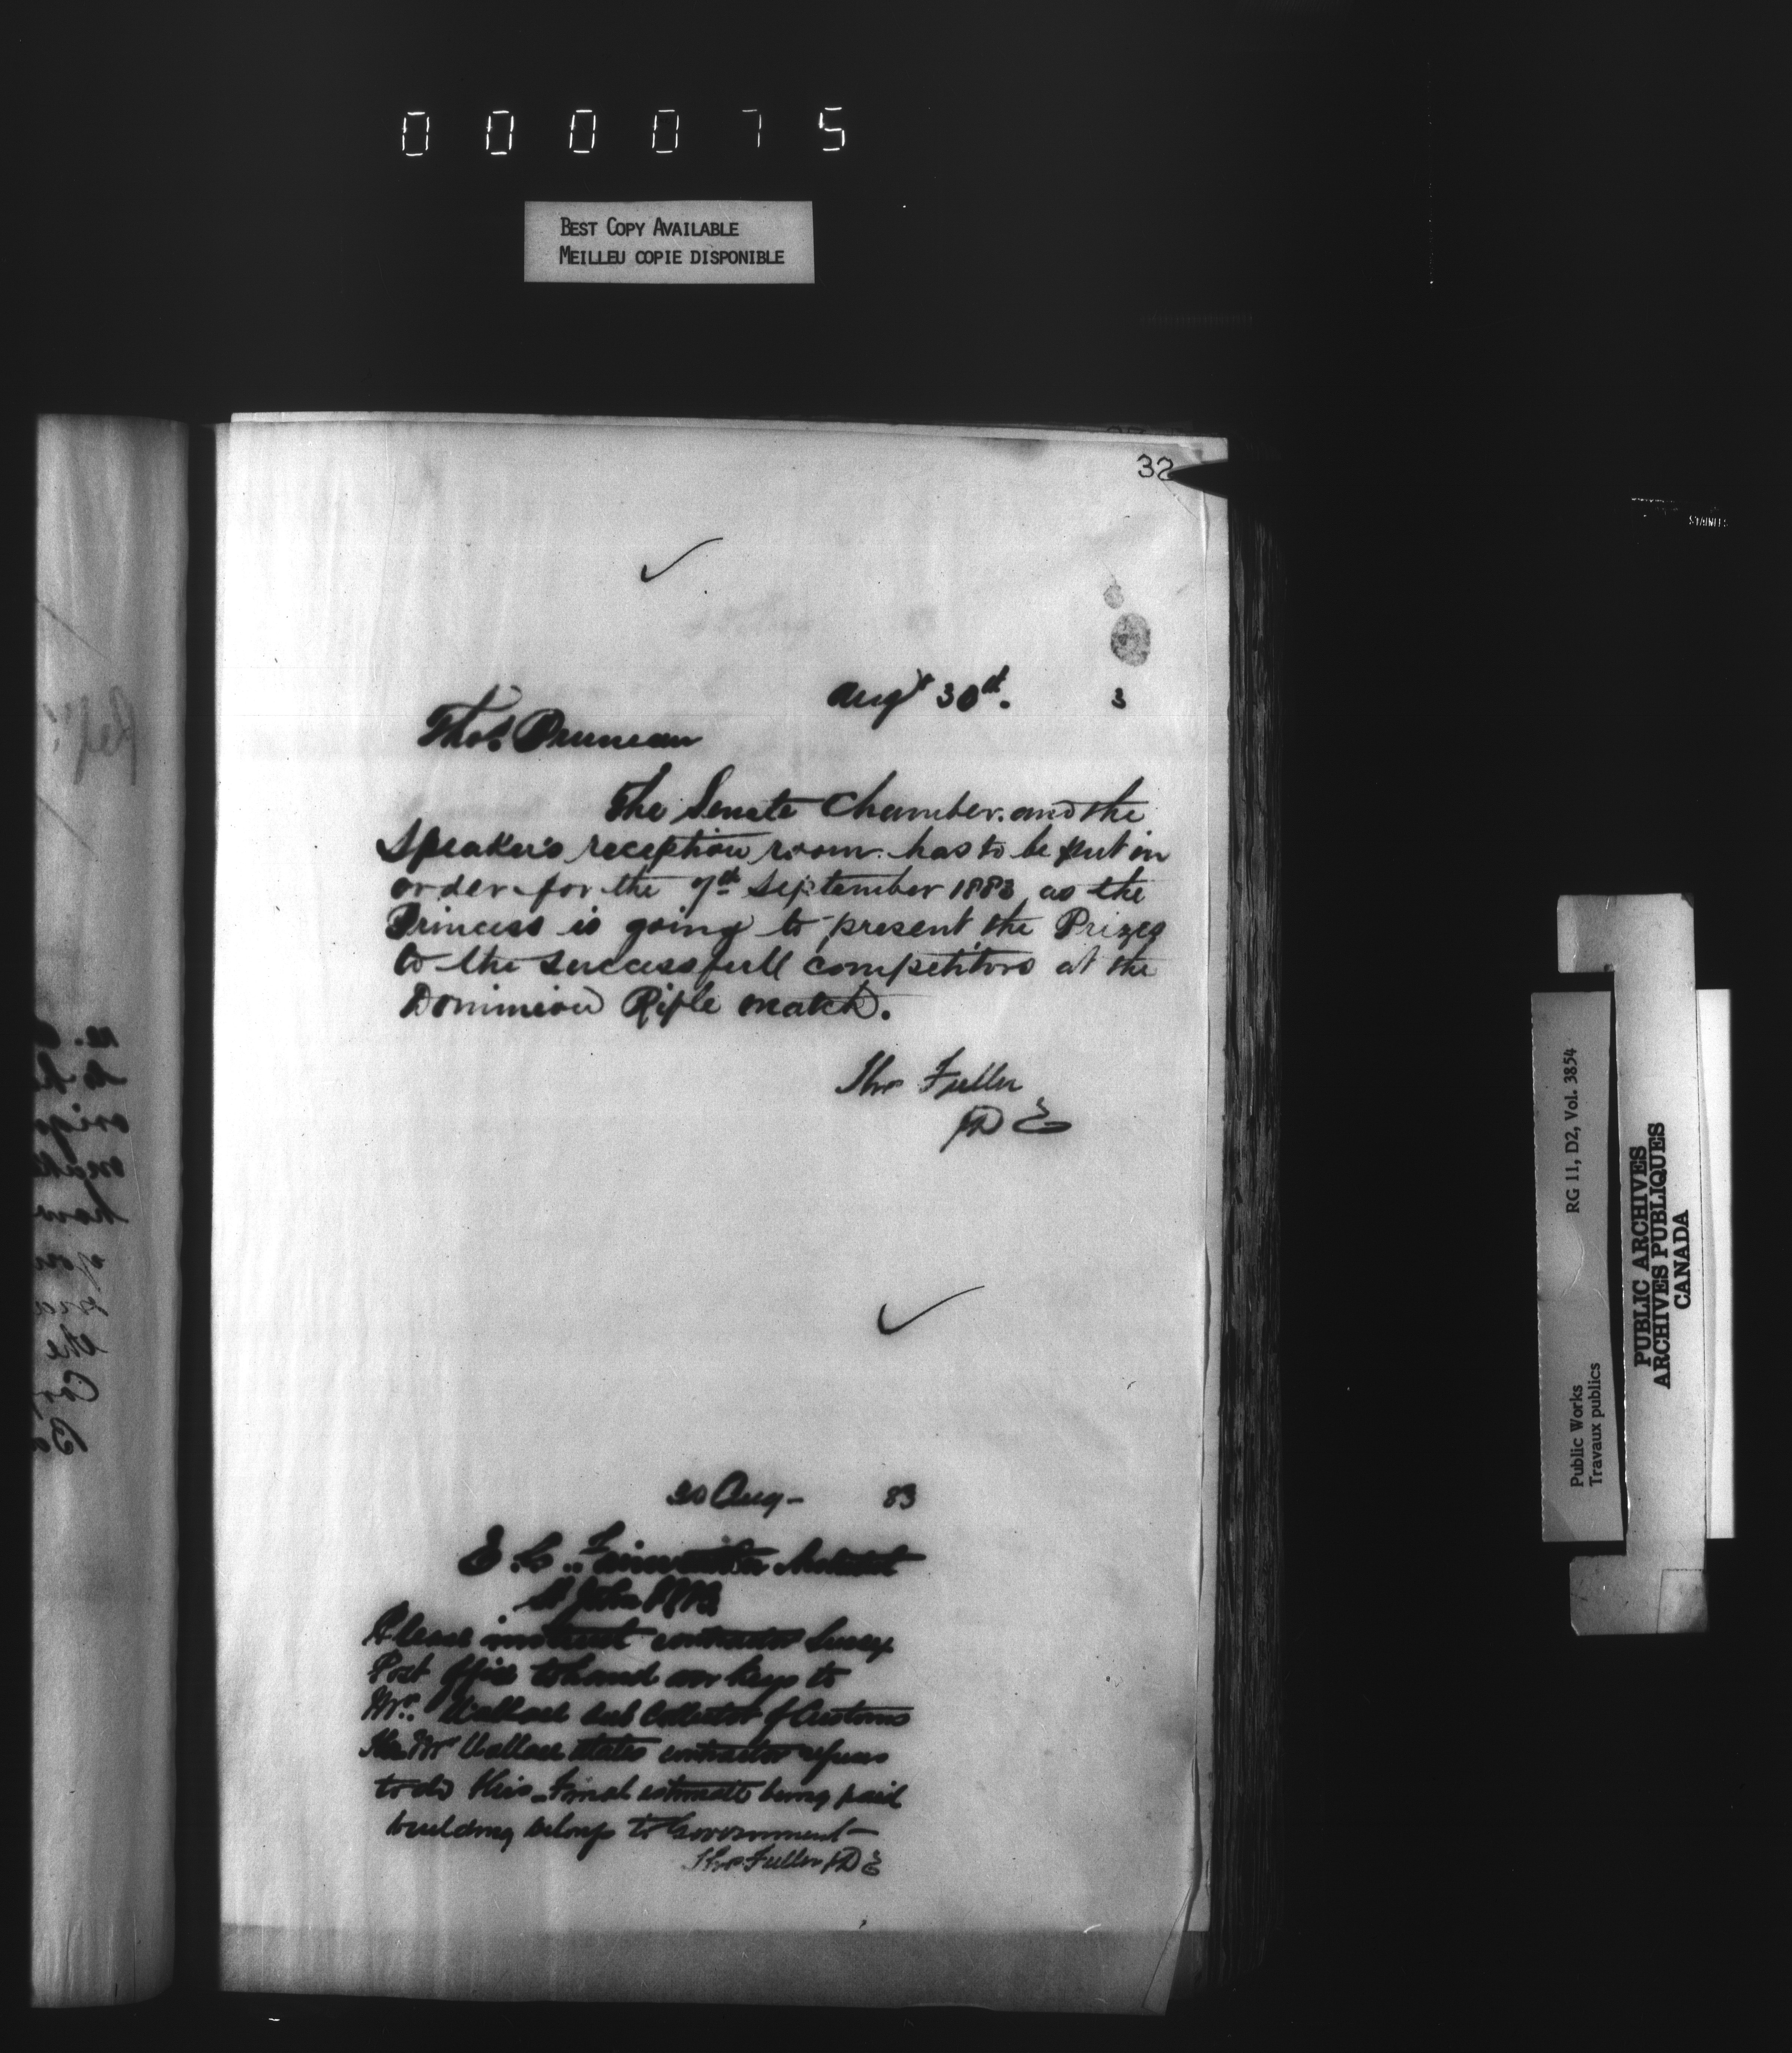 000075
BEST COPY AVAILABLE
MEILLEU COPIE DISPONIBLE
32
Augt 30th. 3
Thos. Pruneau
The Senate Chamber and the
Speaker's reception room has to be put in
order for the 7th September 1883 as the
Princess is going to present the Prizes
to the successfull competitors at the
Dominion Rifle match.
Thos Fuller
D E
30 Aug - 83
E. C. Architect
St John N B
Please instruct contractor Sussex
Post Office to hand over keys to
Mr. Wallace sub Collector of Customs
Mr Wallace states contractor refuses
to do this - Final estimate being paid
building belongs to Government -
Thos Fuller D E
RG 11, D2, Vol. 3854
Public Works
Travaux publics
PUBLIC ARCHIVES
ARCHIVES PUBLIQUES
CANADA